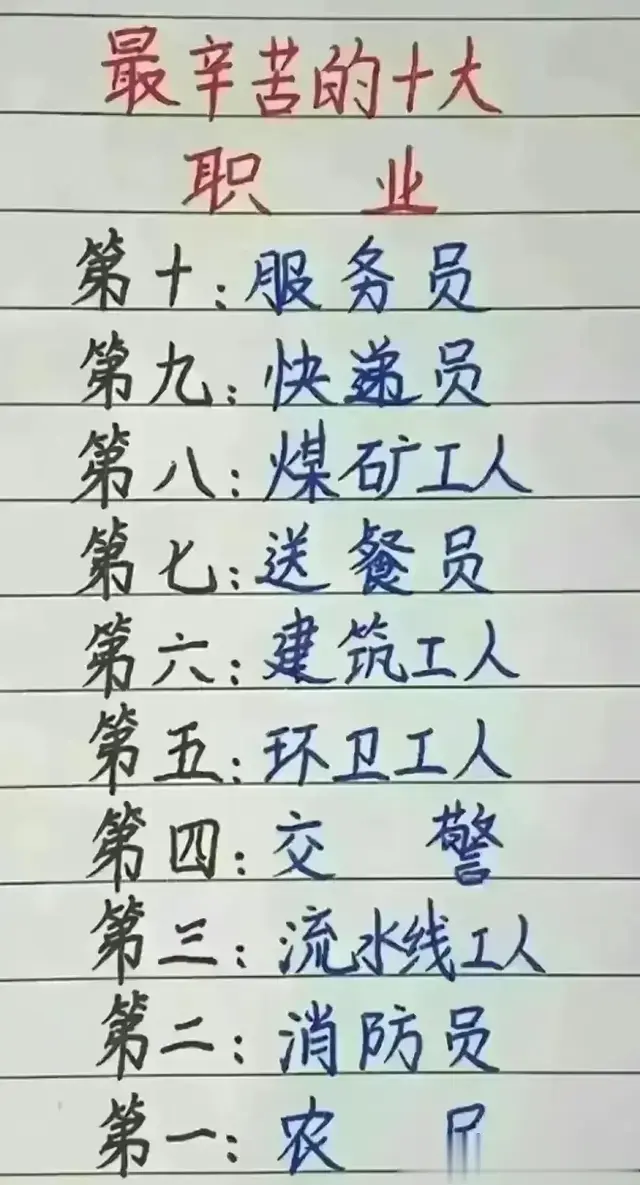 最辛苦的十大
职 业
第十:服务员
第九:快递员
第八:煤矿工人
第七:送餐员
第六:建筑工人
第五:环卫工人
第四:交 警
第三:流水线工人
第二:消防员
第一:农